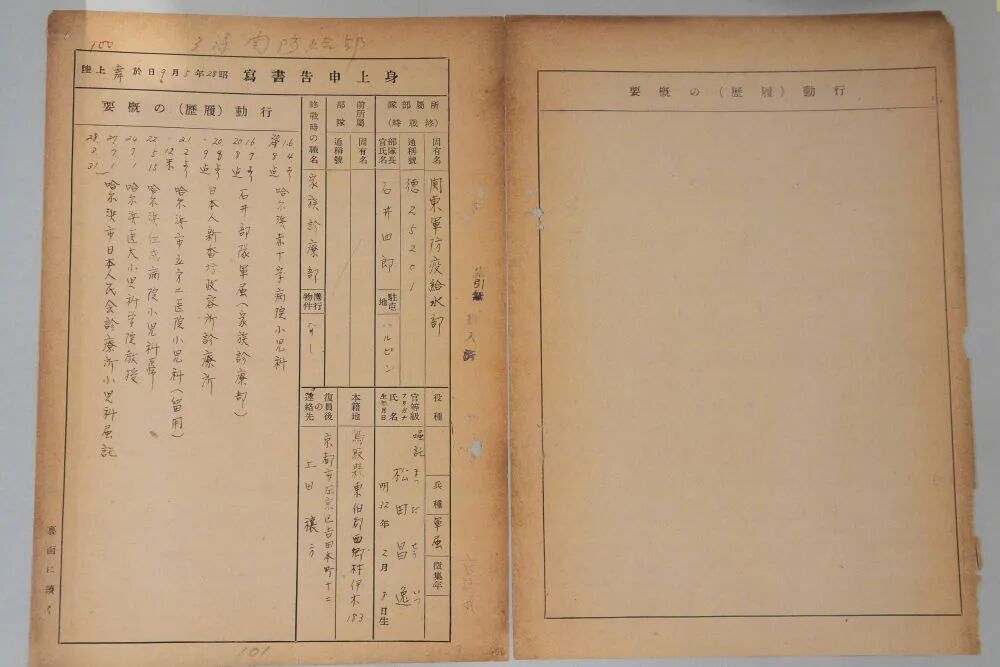 100
身上申告書寫
昭28年5月9日於舞上陸
所屬部隊（終戰時）
固有名
関東軍防疫給水部
通稱號
徳25201
部隊長官氏名
石井四郎
駐屯地
ハルビン
前所屬部隊
固有名
通稱號
終戰時の職名
家族診療部
携行物件
なし
役種
兵種
軍属
徴集年
官等級
嘱託
フリガナ
氏名
生年月日
松田昌逸
明32年2月8日生
本籍地
鳥取縣東伯郡西郷村伊木183
復員後の連絡先
京都市左京区吉田本町十二
上田穰方
行動（履歷）の概要
16 4
哈尔浜赤十字病院小児科
16 7
20 8
石井部隊軍属（家族診療部）
20 8
日本人新香坊政家所診療所
21 2
哈尔浜市立才二医院小児科（留用）
22 5 15
哈尔浜仁病院小児科
24 7 1
哈尔浜医大小児科学院教授
27 7 1
28 3 31
哈尔浜市日本人民会診療所小児科属託
裏面に續く
101
行動（履歷）の概要